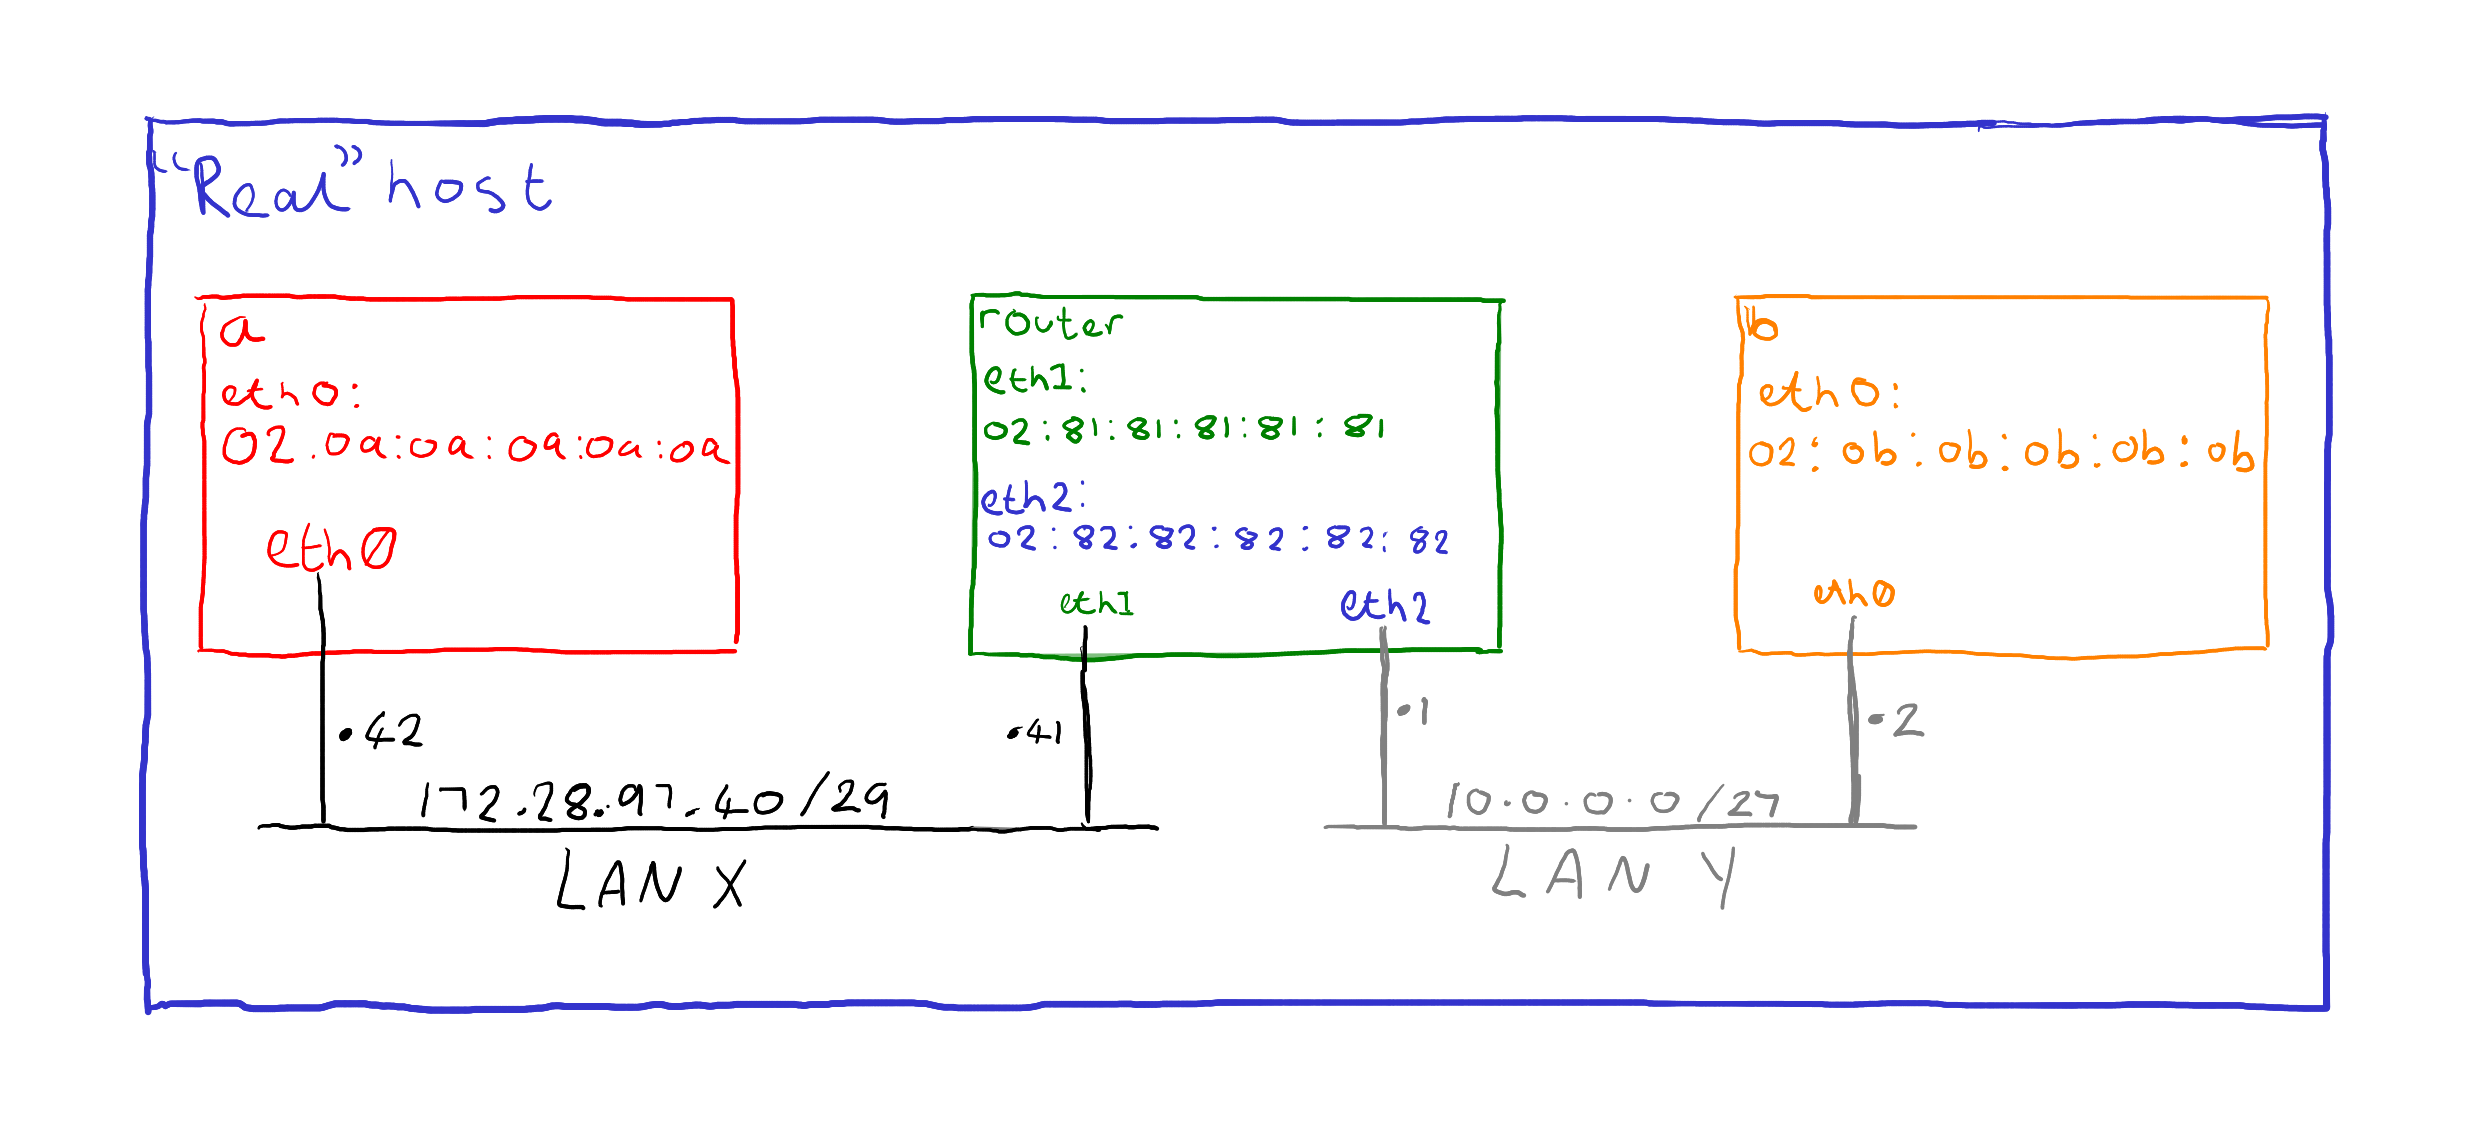 “Real” host
a
eth0:
02.0a:0a:0a:0a:0a
eth0
router
eth1:
02:81:81:81:81:81
eth2:
02:82:82:82:82:82
eth1
eth2
b
eth0:
02:0b:0b:0b:0b:0b
eth0
.42
.41
172.28.97.40/29
LAN X
.1
.2
10.0.0.0/27
LAN Y